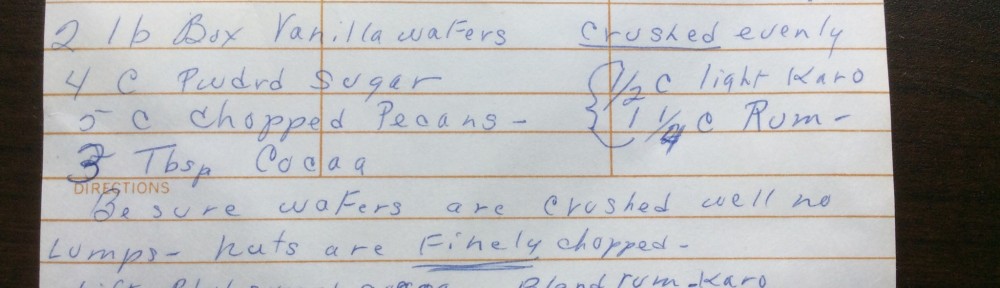 2 1b Box Vanilla wafers Crushed evenly
4 C Pwdrd Sugar { 1/2 C light Karo
5 C Chopped Pecans - 1 1/4 C Rum -
3 Tbsp Cocaa
DIRECTIONS
Be sure wafers are crushed well no
Lumps - nuts are Finely chopped -
Blend rum - Karo